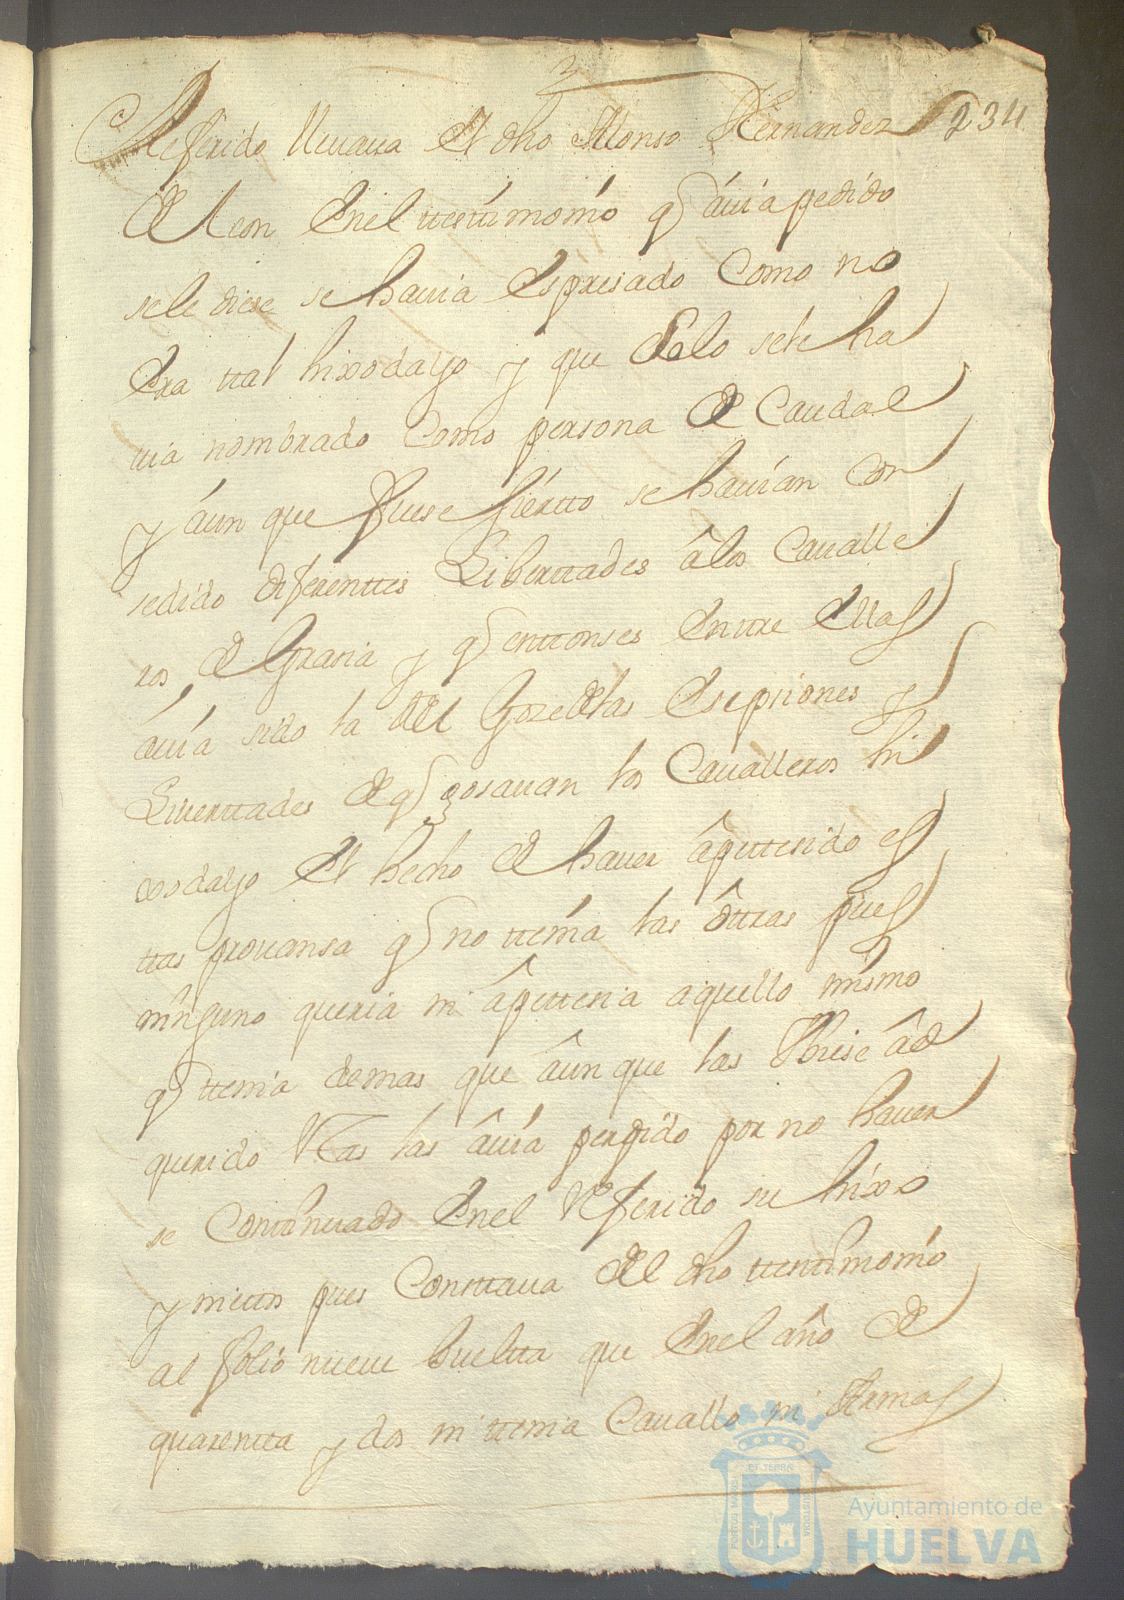 234
Referido llevava El dho Alonso Fernandez
de Leon Enel ttesttimonio q avia pedido
sele diese se havia Espresado Como no
Era ttal hixodalgo y que solo sele ha
via nombrado Como persona de Caudal
y aun que fuese sierto se havian Con
sedido diferenttes Liberttades â los Cavalle
ros de Grasia y q enttonses Enttre Ellas
avia sido la del Goze de las Esepsiones y
Liverttades de q gosavan los Cavalleros hi
xosdalgo El hecho de haver âpettesido es
ttas provansa q no ttenia las ôttras pues
ninguno queria ni âpettesia aquello mismo
q ttenia demas que âunque las Huviese âd
querido las âvia perdido por no haver
se Conttinuado Enel Referido su hixo
y niettos pues Consttava del dho ttesttimonio
al folio nueve bueltta que Enel año de
quarentta y dos ni ttenia Cavallo ni Armas
PORTUS MARIS ET TERRE CUSTODIA
Ayuntamiento de
HUELVA